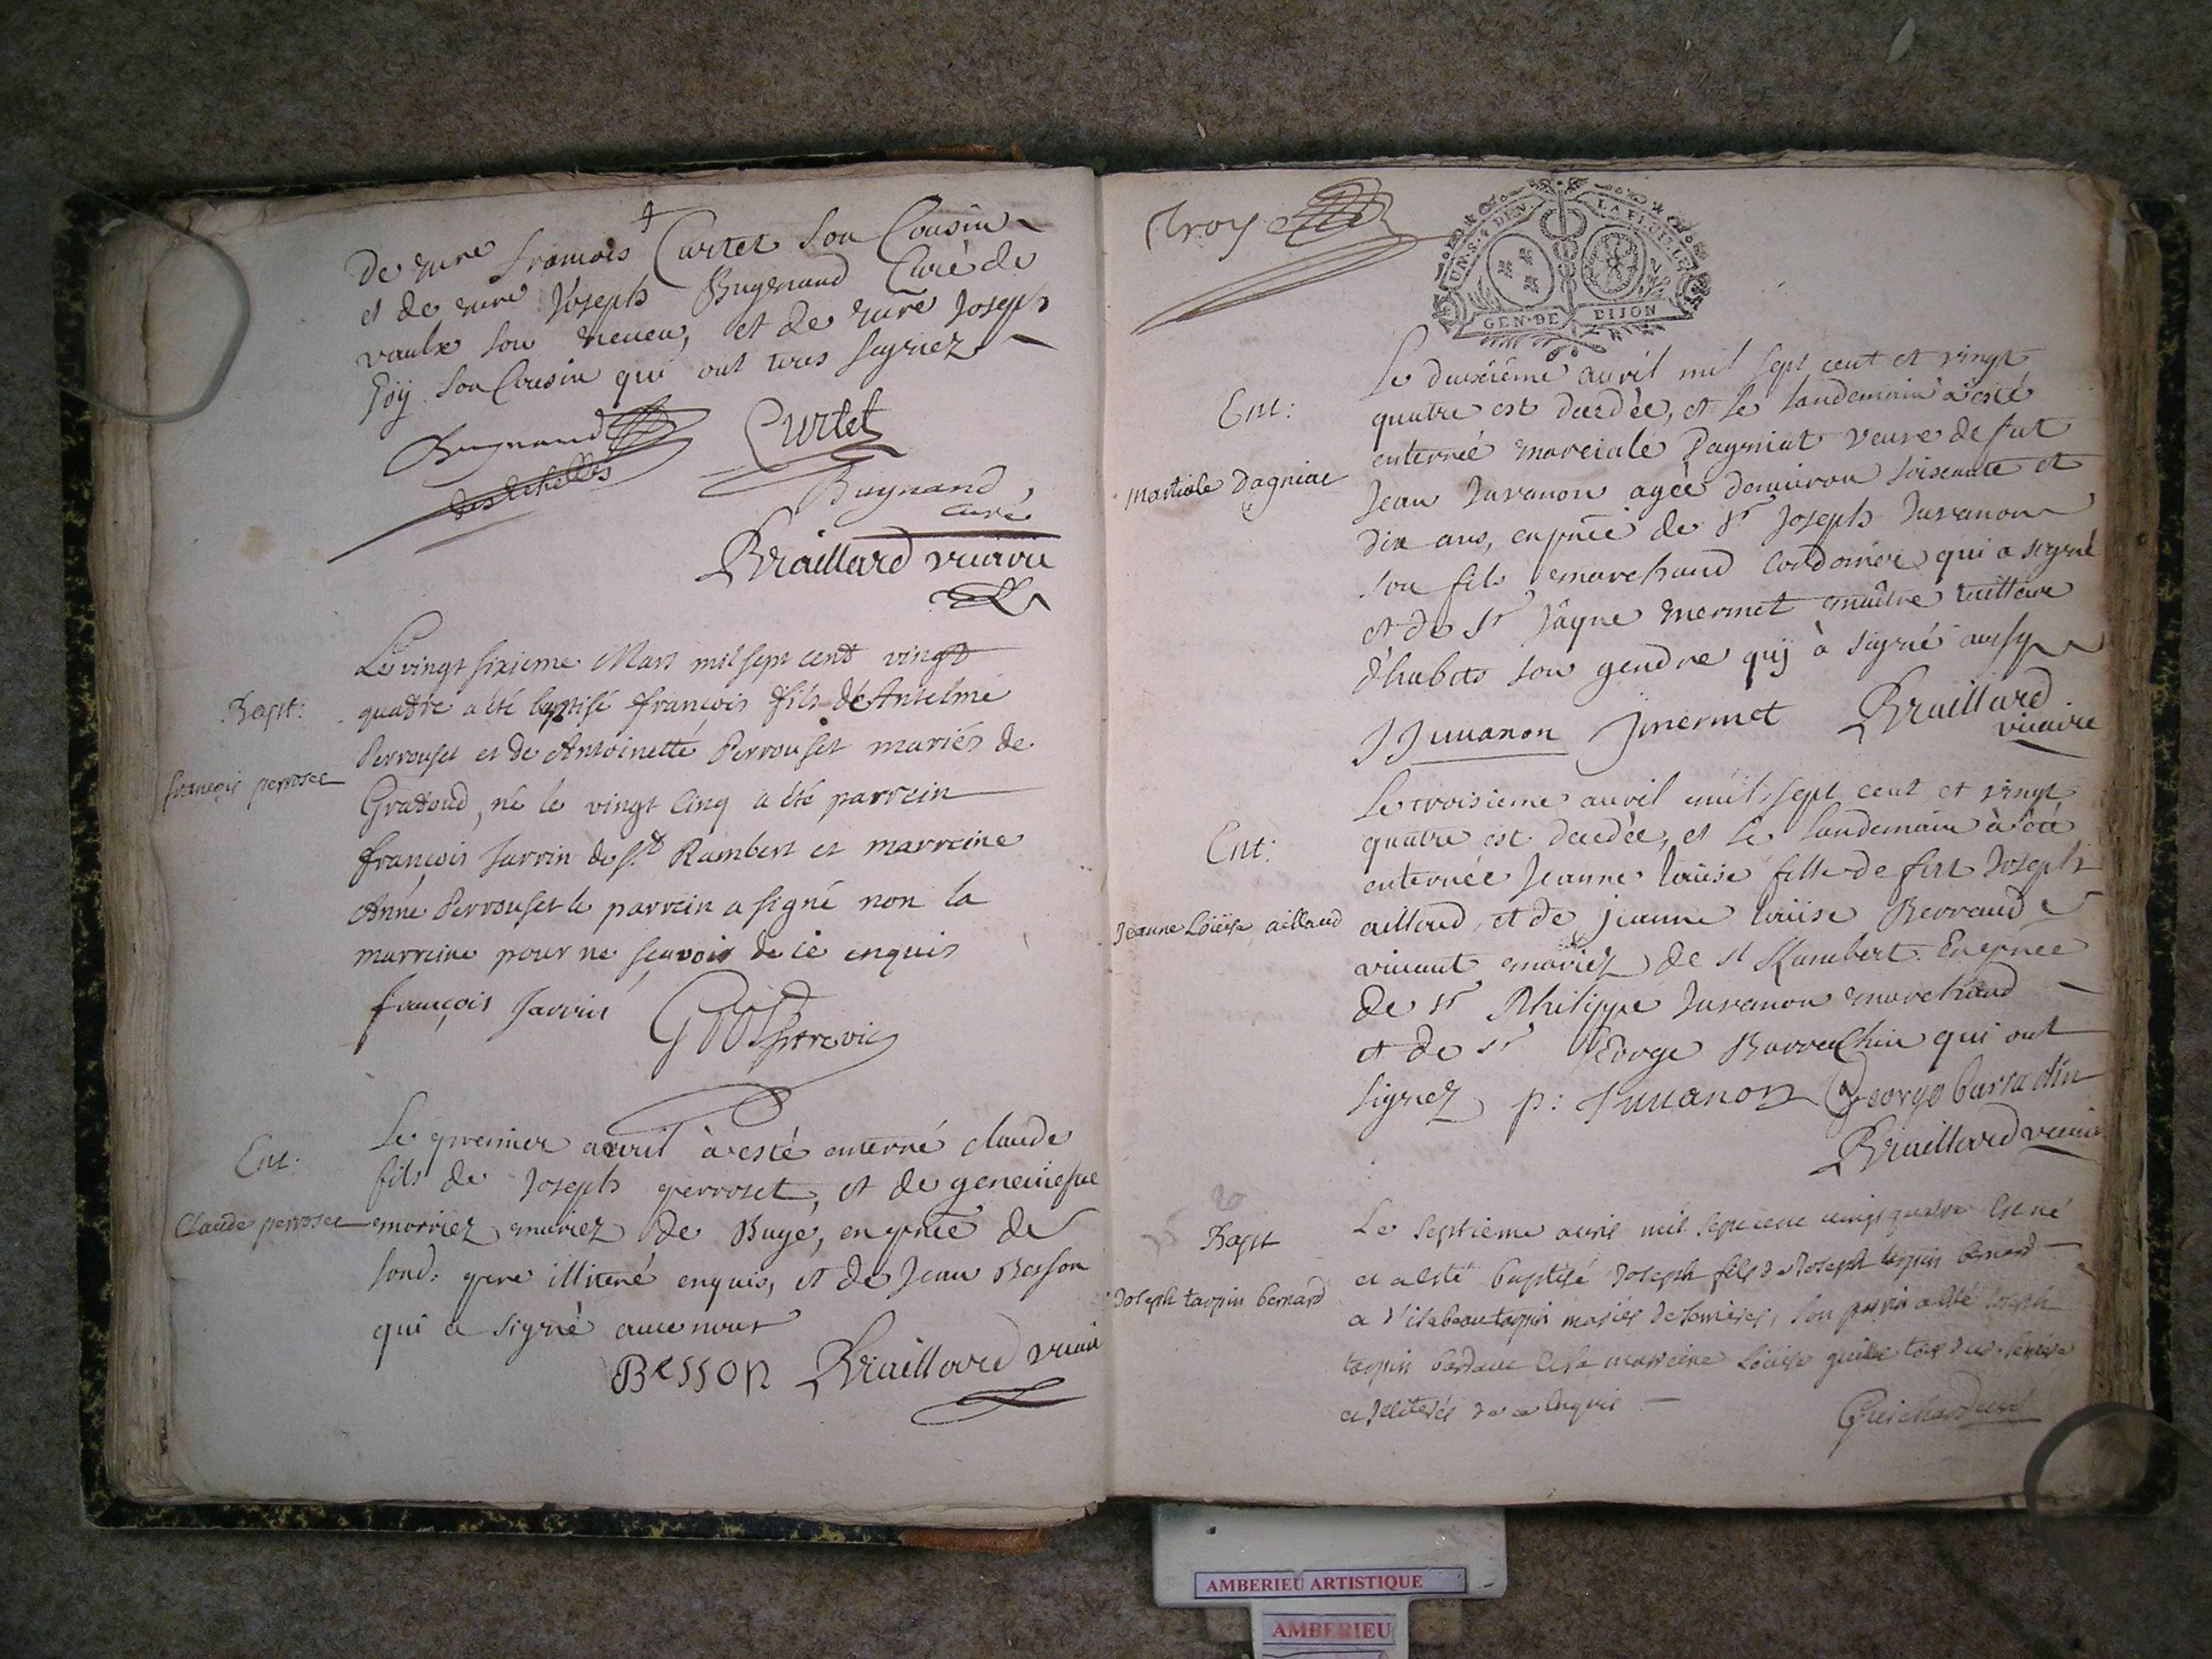 de mre francois Curtet son Cousin
et de mre Joseph Bugnand Curé de
vaulx son neveu, et de mre Joseph
Goÿ son Cousin qui ont tous signez
Bugnand Curtet
des echelles
Bugnand,
curé
Braillard vicaire
Bapt:
françois perroset
Le vingt sixieme Mars mil sept cent vingt
quattre a été baptisé françois fils de Anselme
Perrouset et de Antoinette Perrouset mariés de
Grattoud, né le vingt cinq a été parrein
françois Jarrin de St Rambert et marreine
Anne Perrouset le parrein a signé non la
marreine pour ne sçavoir de ce enquis
françois Jarrin
Ent:
Claude perroset
Le premier avril à esté enterré claude
fils de Joseph perroset, et de geneviefve
morriez mariez de Buge, en pnce de
sond. pere illiteré enquis, et de Jean Besson
qui a signé avec nous
Besson Braillard vicaire
troy
GEN·DE DIJON
Ent:
Martiale dagniat
Le deuxième avril mil sept cent et vingt
quatre est decedée, et le landemain à esté
enterrée marciale Dagniat veuve de fut
Jean Juvanon agée denviron soisente et
dix ans, en pnce de Sr Joseph Juvanon
son fils marchand cordonier qui a signé
et de Sr Jâque mermet maitre tailleur
d'habits son gendre quj à signé aussy
JJuuanon Jmermet Braillard
vicaire
Ent:
Jeanne Loüise aillaud
Le troisieme avril mil sept cent et vingt
quatre est decedée, et le landemain à été
enterrée Jeanne loüise fille de feu Joseph
aillaud, et de jeanne loüise Berraud
vivant mariez de st Rambert. En pnce
de sr Philippe Juvanon marchand
et de sr George Barrachin qui ont
signez p: Juuanon George barradin
Braillard vicaire
20
Bapt
Joseph taspin bernard
Le septieme avril mil sept cent vingt quatre Est né
et a esté baptisé Joseph fils de Joseph taspin bernard
a d'isabeau taspin mariés de son parin a esté Joseph
taspin et la marreine Loüise
et Jliterés de ce Enquis
Guichard curé
AMBERIEU ARTISTIQUE
AMBERIEU